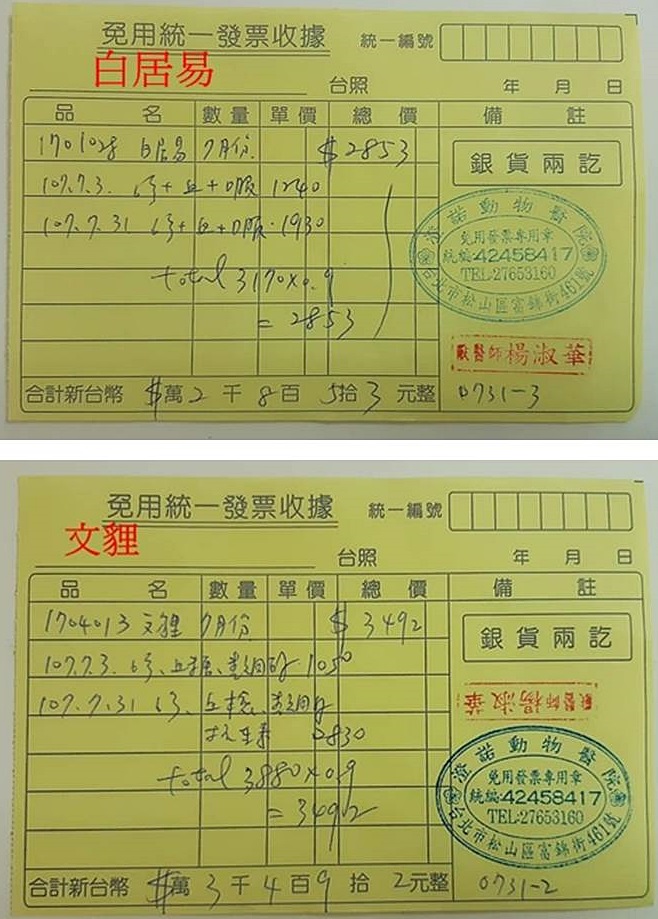 免用統一發票收據 統一編號
白居易
台照 年 月 日
品 名 數量 單價 總 價 備 註
1701028 白居易 7月份. $2853
銀貨兩訖
107.7.3. 1240
107.7.31 1930
澄諾動物醫院
免用發票專用章
統編:42458417
TEL:27653160
台北市松山區富錦街461號
total 3170x0.9
= 2853
獸醫師楊淑華
合計新台幣 $萬2千8百5拾3元整 0731-3
免用統一發票收據 統一編號
文貍
台照 年 月 日
品 名 數量 單價 總 價 備 註
1704013 文貍 7月份 $3492
銀貨兩訖
107.7.3. 1050
獸醫師楊淑華
107.7.31
抗生素 2830
澄諾動物醫院
免用發票專用章
統編:42458417
TEL:27653160
台北市松山區富錦街461號
total 3880x0.9
= 3492
合計新台幣 $萬3千4百9拾2元整 0731-2